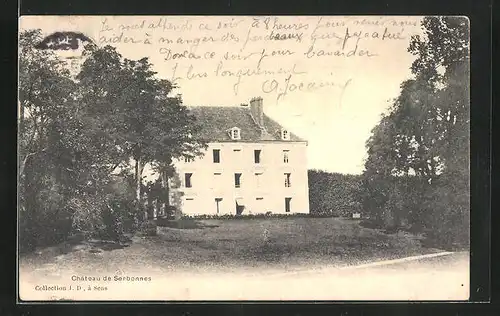 Je vous attends ce soir à 8 heures pour venir nous
aider à manger des gâteaux que
Donc à ce soir pour bavarder
plus longuement
Château de Serbonnes
Collection J. D., à Sens